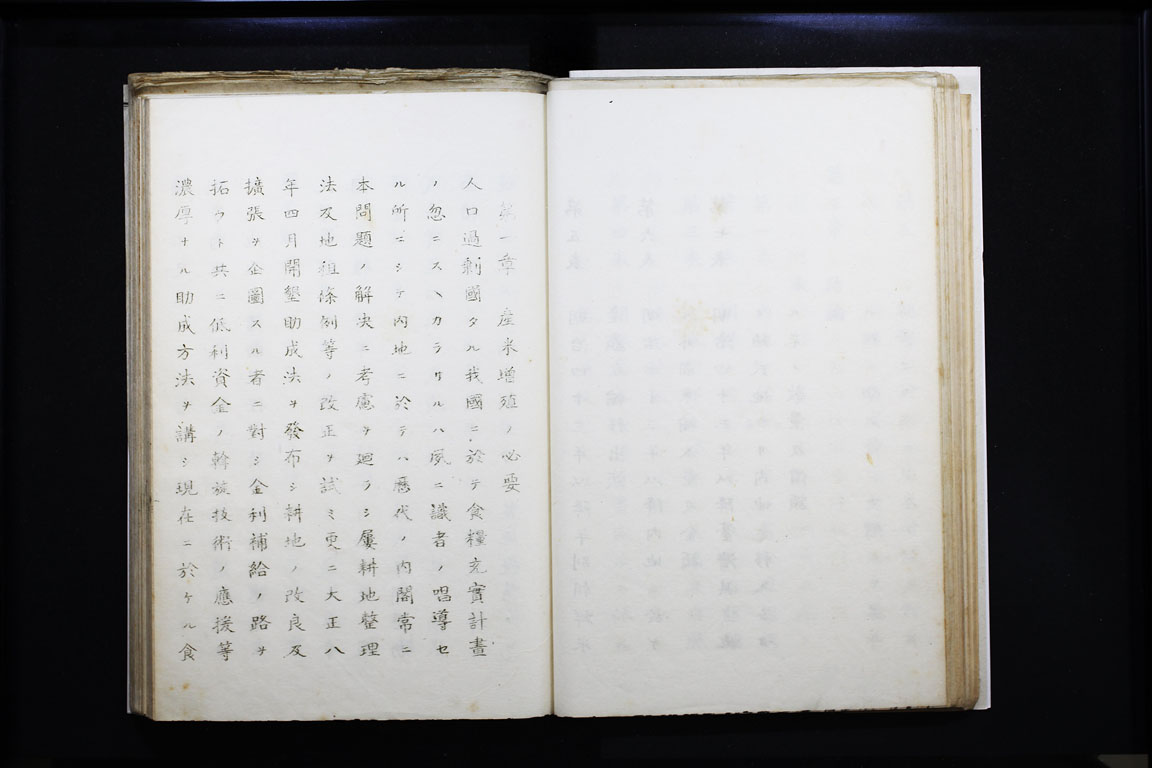 第一章 産米增殖ノ必要
人口過剰國タル我國ニ於テ食糧充實計畫
ノ忽ニスヘカラサルハ夙ニ識者ノ唱導セ
ル所ニシテ内地ニ於テハ歴代ノ内閣常ニ
本問題ノ解決ニ考慮ヲ廻ラシ屢耕地整理
法及地租條例等ノ改正ヲ試ミ更ニ大正八
年四月開墾助成法ヲ發布シ耕地ノ改良及
擴張ヲ企圖スル者ニ對シ金利補給ノ路ヲ
拓クト共ニ低利資金ノ斡旋技術ノ應援等
濃厚ナル助成方法ヲ講シ現在ニ於ケル食